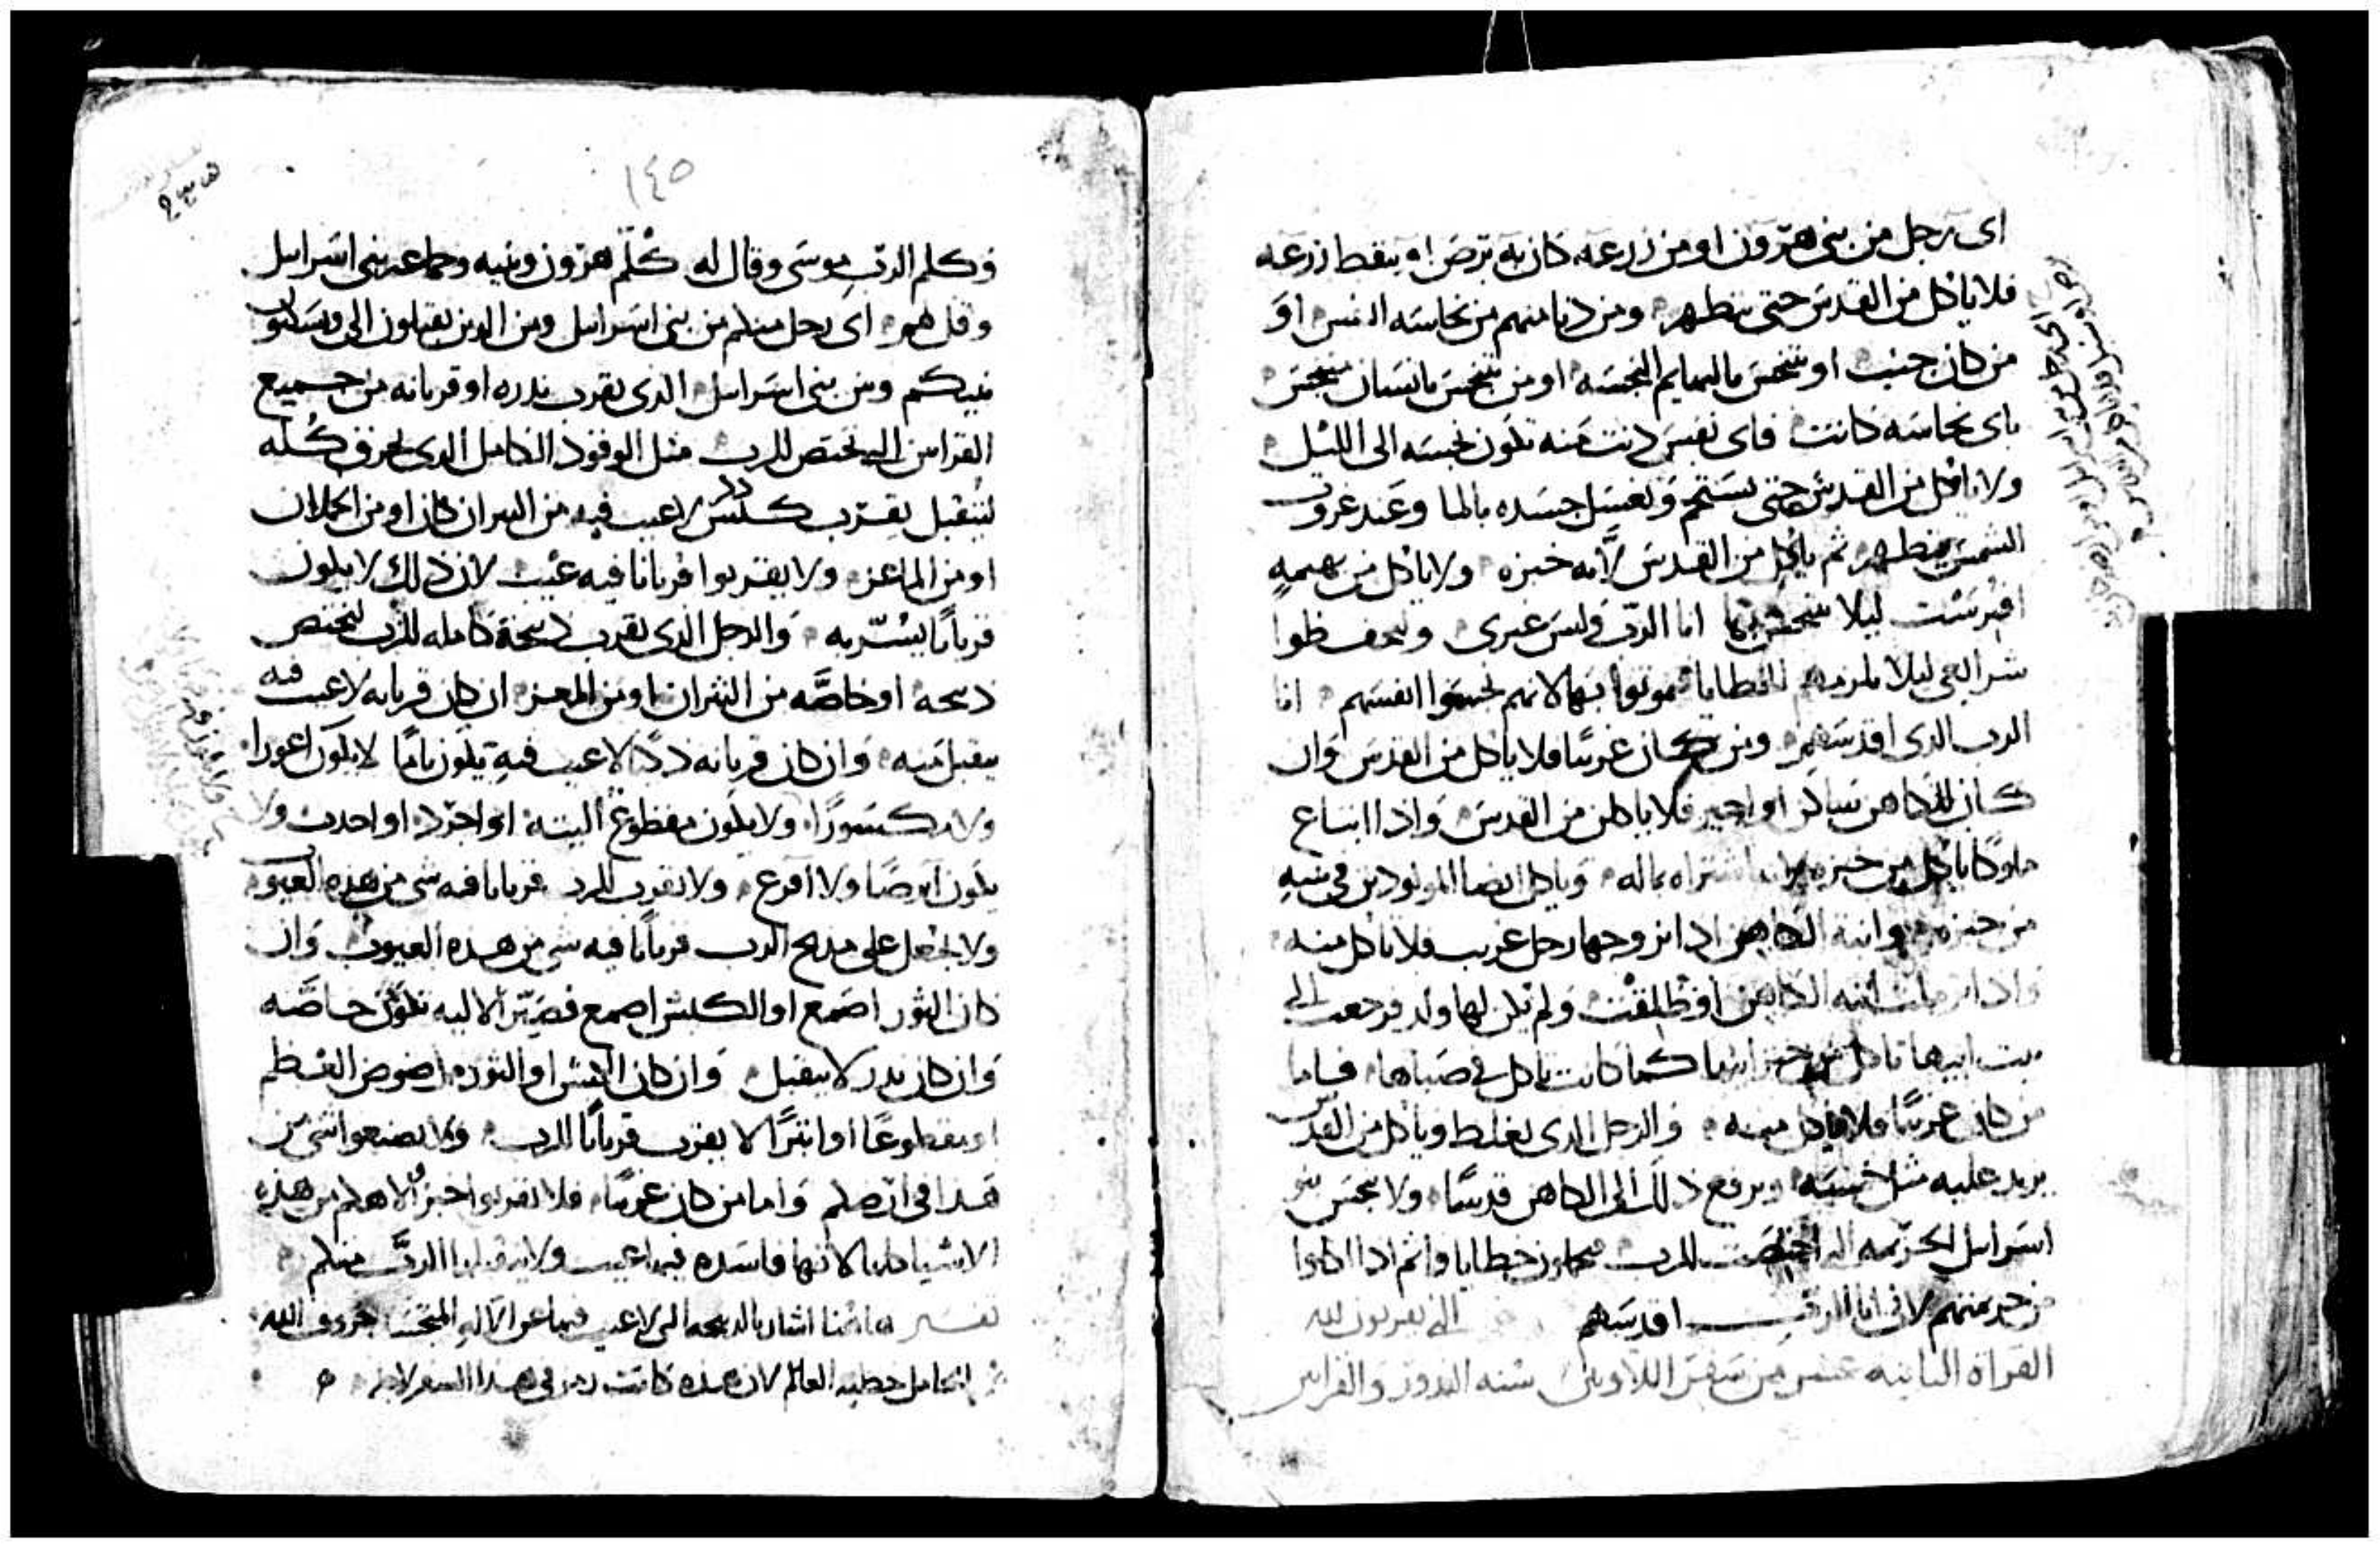 اى رجل من بنى هرون او من زرعه كان به برص او ينقط زرعه
فلا ياكل من القدس حتى يتطهر ومن دنا منهم من نجاسه النفس او
من كان جنب او تنجس بالبهايم النجسه او من تنجس بانسان منجس
باى نجاسه كانت فاى نفس دنت منه تكون نجسه الى الليل
ولا ياكل من القدس حتى يستحم ويغسل جسده بالما وعند غروب
الشمس يتطهر ثم ياكل من القدس لانه خبزه ولا ياكل من بهيمه
افترست ليلا يتنجس بها انا الرب وليس غيرى وليحفظوا
شرايعى ليلا يلزمهم الخطايا فيموتوا بها لانهم نجسوا انفسهم انا
الرب الذى اقدسهم ومن كان غريبا فلا ياكل من القدس وان
كان للكاهن ساكن او اجير فلا ياكلن من القدس واذا ابتاع
مملوكا ياكل من خبزه اشتراه بماله وياكل ايضا المولودين فى بيته
من خبزه وابنة الكاهن اذا تزوجها رجل غريب فلا تاكل منه
واذا ترملت ابنه الكاهن او طلقت ولم يكن لها ولد فرجعت الى
بيت ابيها تاكل من خبز ابيها كما كانت تاكل فى صباها فاما
من كان غريبا فلا ياكل منه والرجل الذى يغلط وياكل من القدس
يزيد عليه مثل خمسه ويرفع ذلك الى الكاهن قدسا ولا ينجس بنو
اسراييل الحرمه التى اختصت للرب فيحملون خطايا واثم اذا اكلوا
من حرمتهم لانى انا الرب اقدسهم التى يقربون لله
القراة الثانيه عشر من سفر اللاويين سنه الندور والقرابين
١٤٥
وكلم الرب موسى وقال له كلم هرون وبنيه وجماعه بنى اسراييل
وقل لهم اى رجل منكم من بنى اسراييل ومن الدين يقبلون الى ويسكنون
فيكم ومن بنى اسراييل الدى يقرب ندره او قربانه من جميع
القرابين التى تختص للرب مثل الوقود الكامل الدى يحرق كله
ليتقبل يقرب كبش دكر لا عيب فيه من التيران كان او من الحملان
او من الماعز ولا يقربوا قربانا فيه عيب لان ذلك لا يكون
قربانا يسر به والرجل الدى يقرب ذبيحة كامله للرب ليختص
ذبيحه او خاصه من الثيران او من المعز ان كان قربانه لا عيب فيه
يتقبل منه وان كان قربانه ذكرا لا عيب فيه يكون تاما لا يكون اعورا
ولا مكسورا ولا يكون مقطوع اليته او اجرد او احدب ولا
يكون ابرصا ولا اقرع ولا تقرب للرب قربانا فيه شى من هده العيوب
ولا تجعل على مدبح الرب قربانا فيه شى من هذه العيوب وان
كان الثور اصمع او الكبش اصمع قصير الاليه تكون خاصه
وان كان ندر لا يتقبل وان كان الكبش او الثور مرضوض العظم
او مقطوعا او ابترا لا يقرب قربانا للرب ولا يصنعوا شى من
هدا فى ارضكم واما من كان غريبا فلا تقربوا خبز الاهكم من هذه
الاشيا كلها لانها فاسده فيها عيب ولا يتقبلها الرب منكم
تفسير هاهنا اشار بالدبيحه التى لا عيب فيها عن الاله المتجسد حروف الله
الحامل خطيه العالم لان هده كانت رمز فى هدا السفر